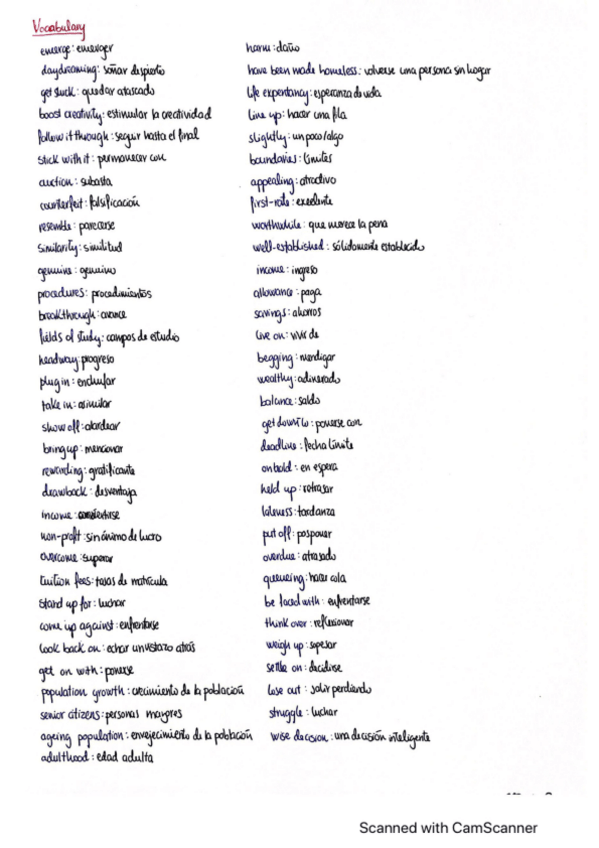 Vocabulary
emerge: emerger
daydreaming: soñar despierto
get stuck: quedar atascado
boost creativity: estimular la creatividad
follow it through: seguir hasta el final
stick with it: permanecer con
auction: subasta
counterfeit: falsificación
resemble: parecerse
similarity: similitud
genuine: genuino
procedures: procedimientos
breakthrough: avance
fields of study: campos de estudio
headway: progreso
plug in: enchufar
take in: asimilar
show off: alardear
bring up: mencionar
rewarding: gratificante
drawback: desventaja
income:
non-profit: sin ánimo de lucro
overcome: superar
tuition fees: tasas de matrícula
stand up for: luchar
come up against: enfrentarse
look back on: echar un vistazo atrás
get on with: ponerse
population growth: crecimiento de la población
senior citizens: personas mayores
ageing population: envejecimiento de la población
adulthood: edad adulta
harm: daño
have been made homeless: volverse una persona sin hogar
life expentancy: esperanza de vida
line up: hacer una fila
slightly: un poco/algo
boundaries: límites
appealing: atractivo
first-rate: excelente
worthwhile: que merece la pena
well-established: sólidamente establecido
income: ingreso
allowance: paga
savings: ahorros
live on: vivir de
begging: mendigar
wealthy: adinerado
balance: saldo
get down to: ponerse con
deadline: fecha límite
on hold: en espera
held up: retrasar
lateness: tardanza
put off: posponer
overdue: atrasado
queueing: hacer cola
be faced with: enfrentarse
think over: reflexionar
weigh up: sopesar
settle on: decidirse
lose out: salir perdiendo
struggle: luchar
wise decision: una decisión inteligente
Scanned with CamScanner